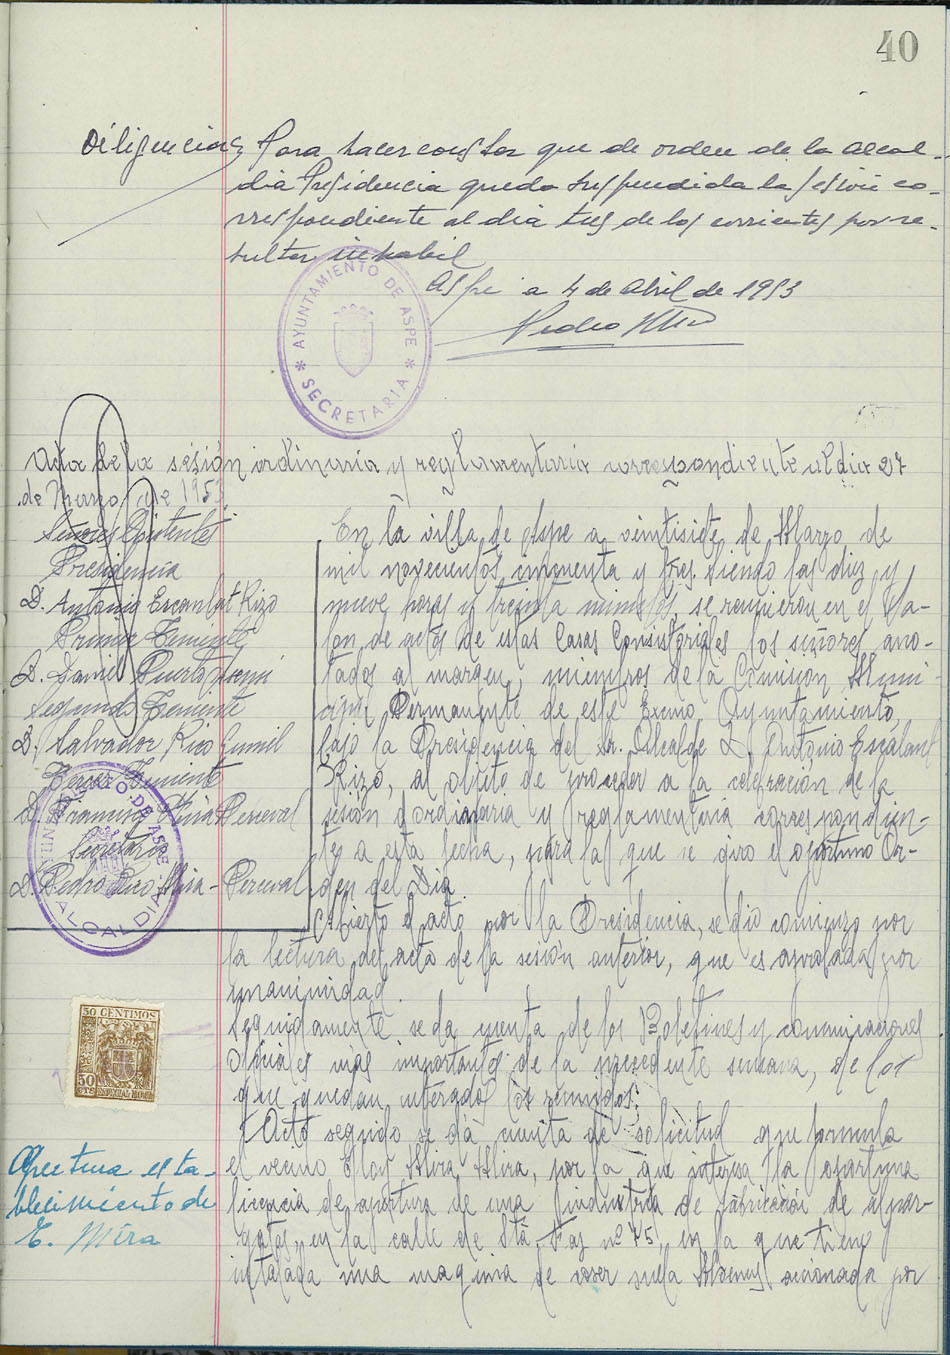 40
Diligencia; Para hacer constar que de orden de la Alcal-
dia Presidencia queda suspendida la sesion co-
rrespondiente al dia tres de los corrientes por re-
sultar inhabil
Aspe a 4 de Abril de 1953
Pedro
* AYUNTAMIENTO DE ASPE * SECRETARIA
Acta de la sesión ordinaria y reglamentaria correspondiente al dia 27
de Marzo de 1953
Señores Asistentes
Presidencia
D. Antonio Escanlant Rizo
Primer Teniente
D. Daniel Puerto
Segundo Teniente
D. Salvador Rico Gumil
Tercer Teniente
D. Francisco Mira Perceval
Secretario
D. Pedro Rico Mira-Perceval
AYUNTAMIENTO DE ASPE
ALCALDIA
En la villa de Aspe a veintisiete de Marzo de
mil novecientos cincuenta y tres. Siendo las diez y
nueve horas y treinta minutos, se reunieron en el Sa-
lon de actos de estas Casas Consistoriales los señores ano-
tados al margen, miembros de la Comision Muni-
cipal Permanente de este Excmo Ayuntamiento,
bajo la Presidencia del Sr. Alcalde D. Antonio Escalant
Rizo, al objeto de proceder a la celebración de la
sesión ordinaria y reglamentaria correspondien-
te a esta fecha, para la que se giro el oportuno Or-
den del Dia
Abierto el acto por la Presidencia, se dio comienzo por
la lectura del acta de la sesión anterior, que es aprobada por
unanimidad.
Seguidamente se da cuenta de los Boletines y comunicaciones
oficiales más importantes de la precedente semana, de los
que quedan enterados los reunidos;
Acto seguido se dá cuenta de solicitud que formula
el vecino Eloy Mira Mira, por la que interesa la oportuna
licencia de apertura de una industria de fabricación de alpar-
gatas, en la calle de Stª Faz nº 75, en la que tiene
instalada una maquina de coser suela accionada por
50 CENTIMOS
50
CTS
ESPECIAL MOVIL
Apertura esta-
blecimiento de
E. Mira